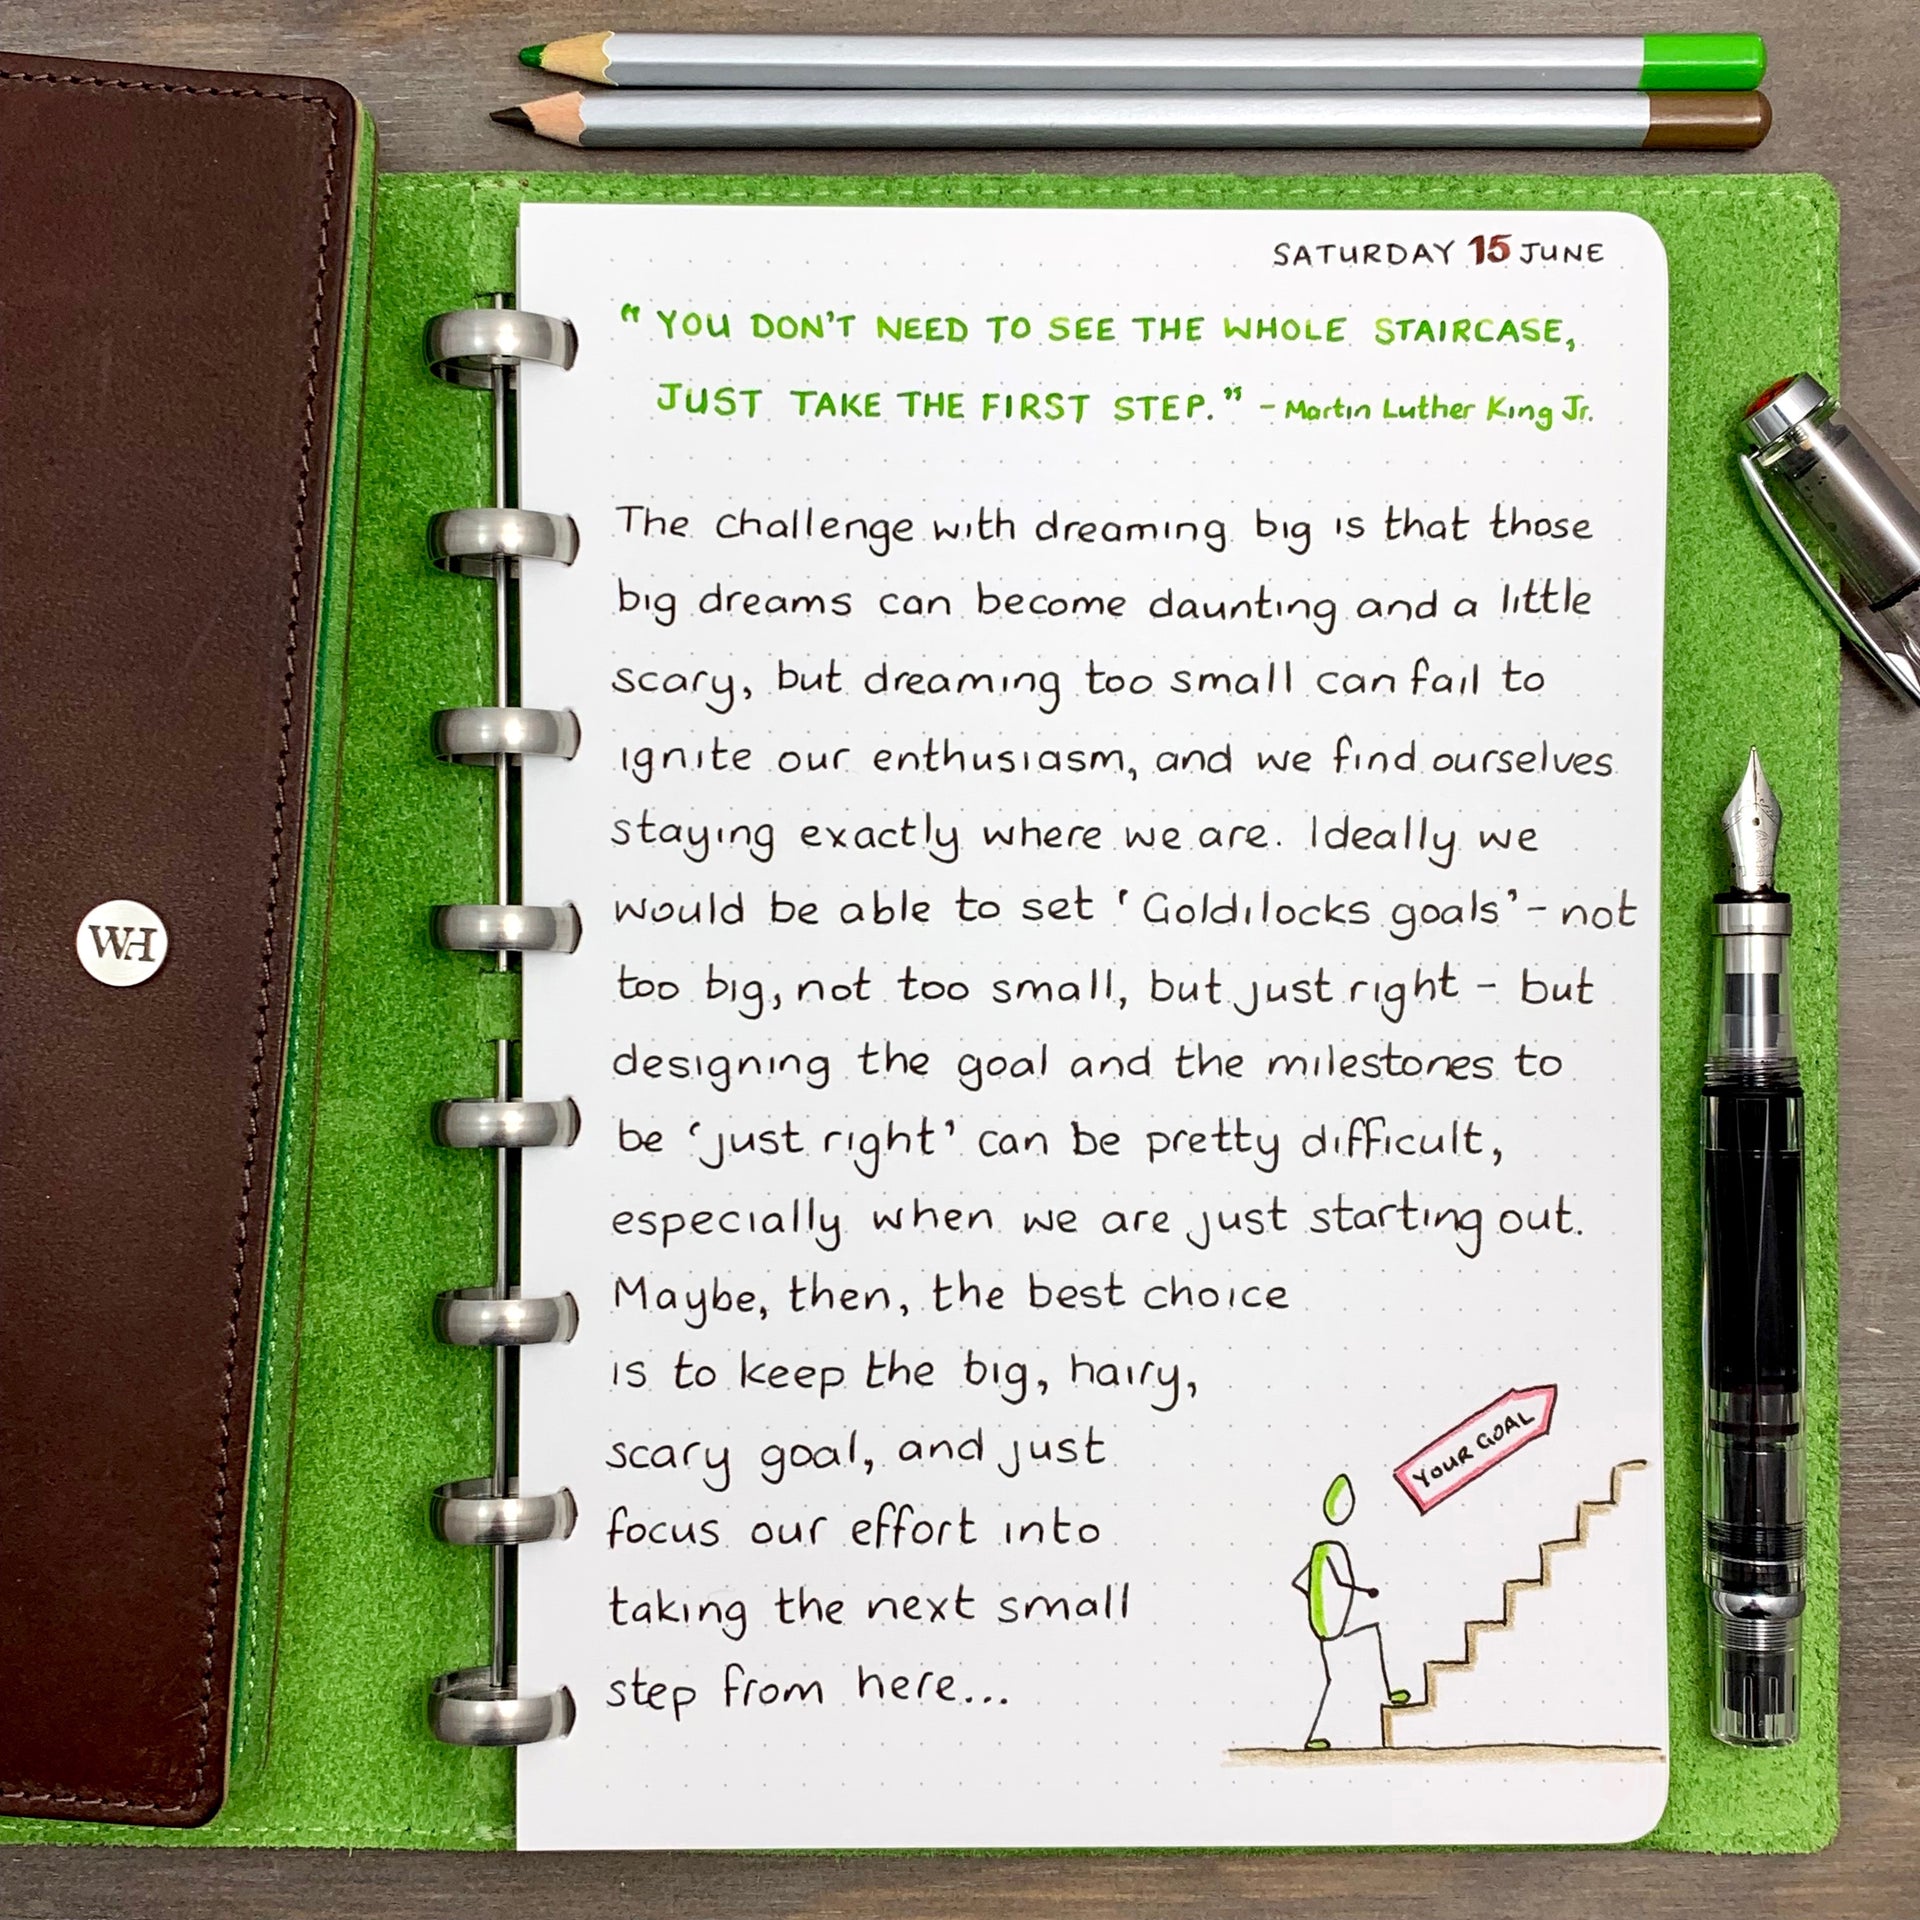 SATURDAY 15 JUNE
"YOU DON'T NEED TO SEE THE WHOLE STAIRCASE,
JUST TAKE THE FIRST STEP." - Martin Luther King Jr.
The challenge with dreaming big is that those
big dreams can become daunting and a little
scary, but dreaming too small can fail to
ignite our enthusiasm, and we find ourselves
staying exactly where we are. Ideally we
would be able to set 'Goldilocks goals' - not
too big, not too small, but just right - but
designing the goal and the milestones to
be 'just right' can be pretty difficult,
especially when we are just starting out.
Maybe, then, the best choice
is to keep the big, hairy,
scary goal, and just
focus our effort into
taking the next small
step from here...
YOUR GOAL
WH